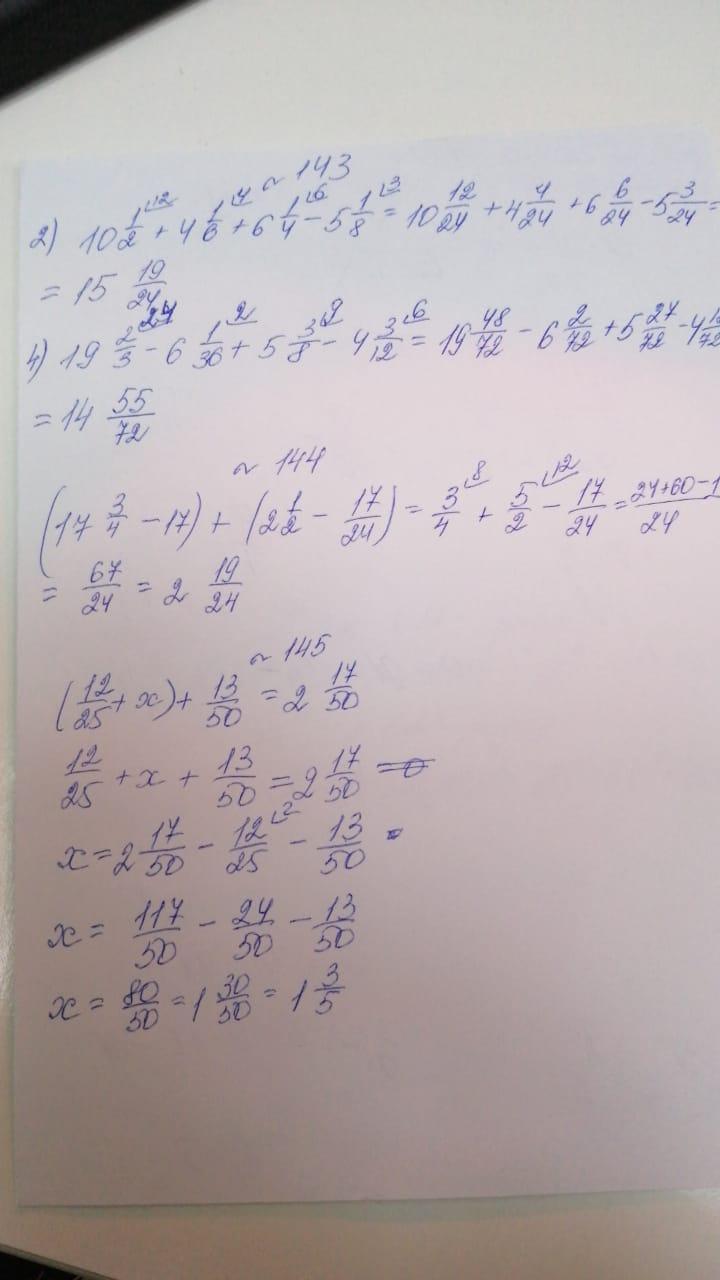 ~ 143
2) 10 1/2 ⌊12 + 4 1/6 ⌊4 + 6 1/4 ⌊6 - 5 1/8 ⌊3 = 10 12/24 + 4 4/24 + 6 6/24 - 5 3/24 =
= 15 19/24
4) 19 2/3 ⌊24 - 6 1/36 ⌊2 + 5 3/8 ⌊9 - 4 3/12 ⌊6 = 19 48/72 - 6 2/72 + 5 27/72 - 4 1/72
= 14 55/72
~ 144
(17 3/4 - 17) + (2 1/2 - 17/24) = 3/4 ⌊8 + 5/2 ⌊12 - 17/24 = 24+60-1/24
= 67/24 = 2 19/24
~ 145
(12/25 + x) + 13/50 = 2 17/50
12/25 + x + 13/50 = 2 17/50
x = 2 17/50 - 12/25 ⌊2 - 13/50
x = 117/50 - 24/50 - 13/50
x = 80/50 = 1 30/50 = 1 3/5